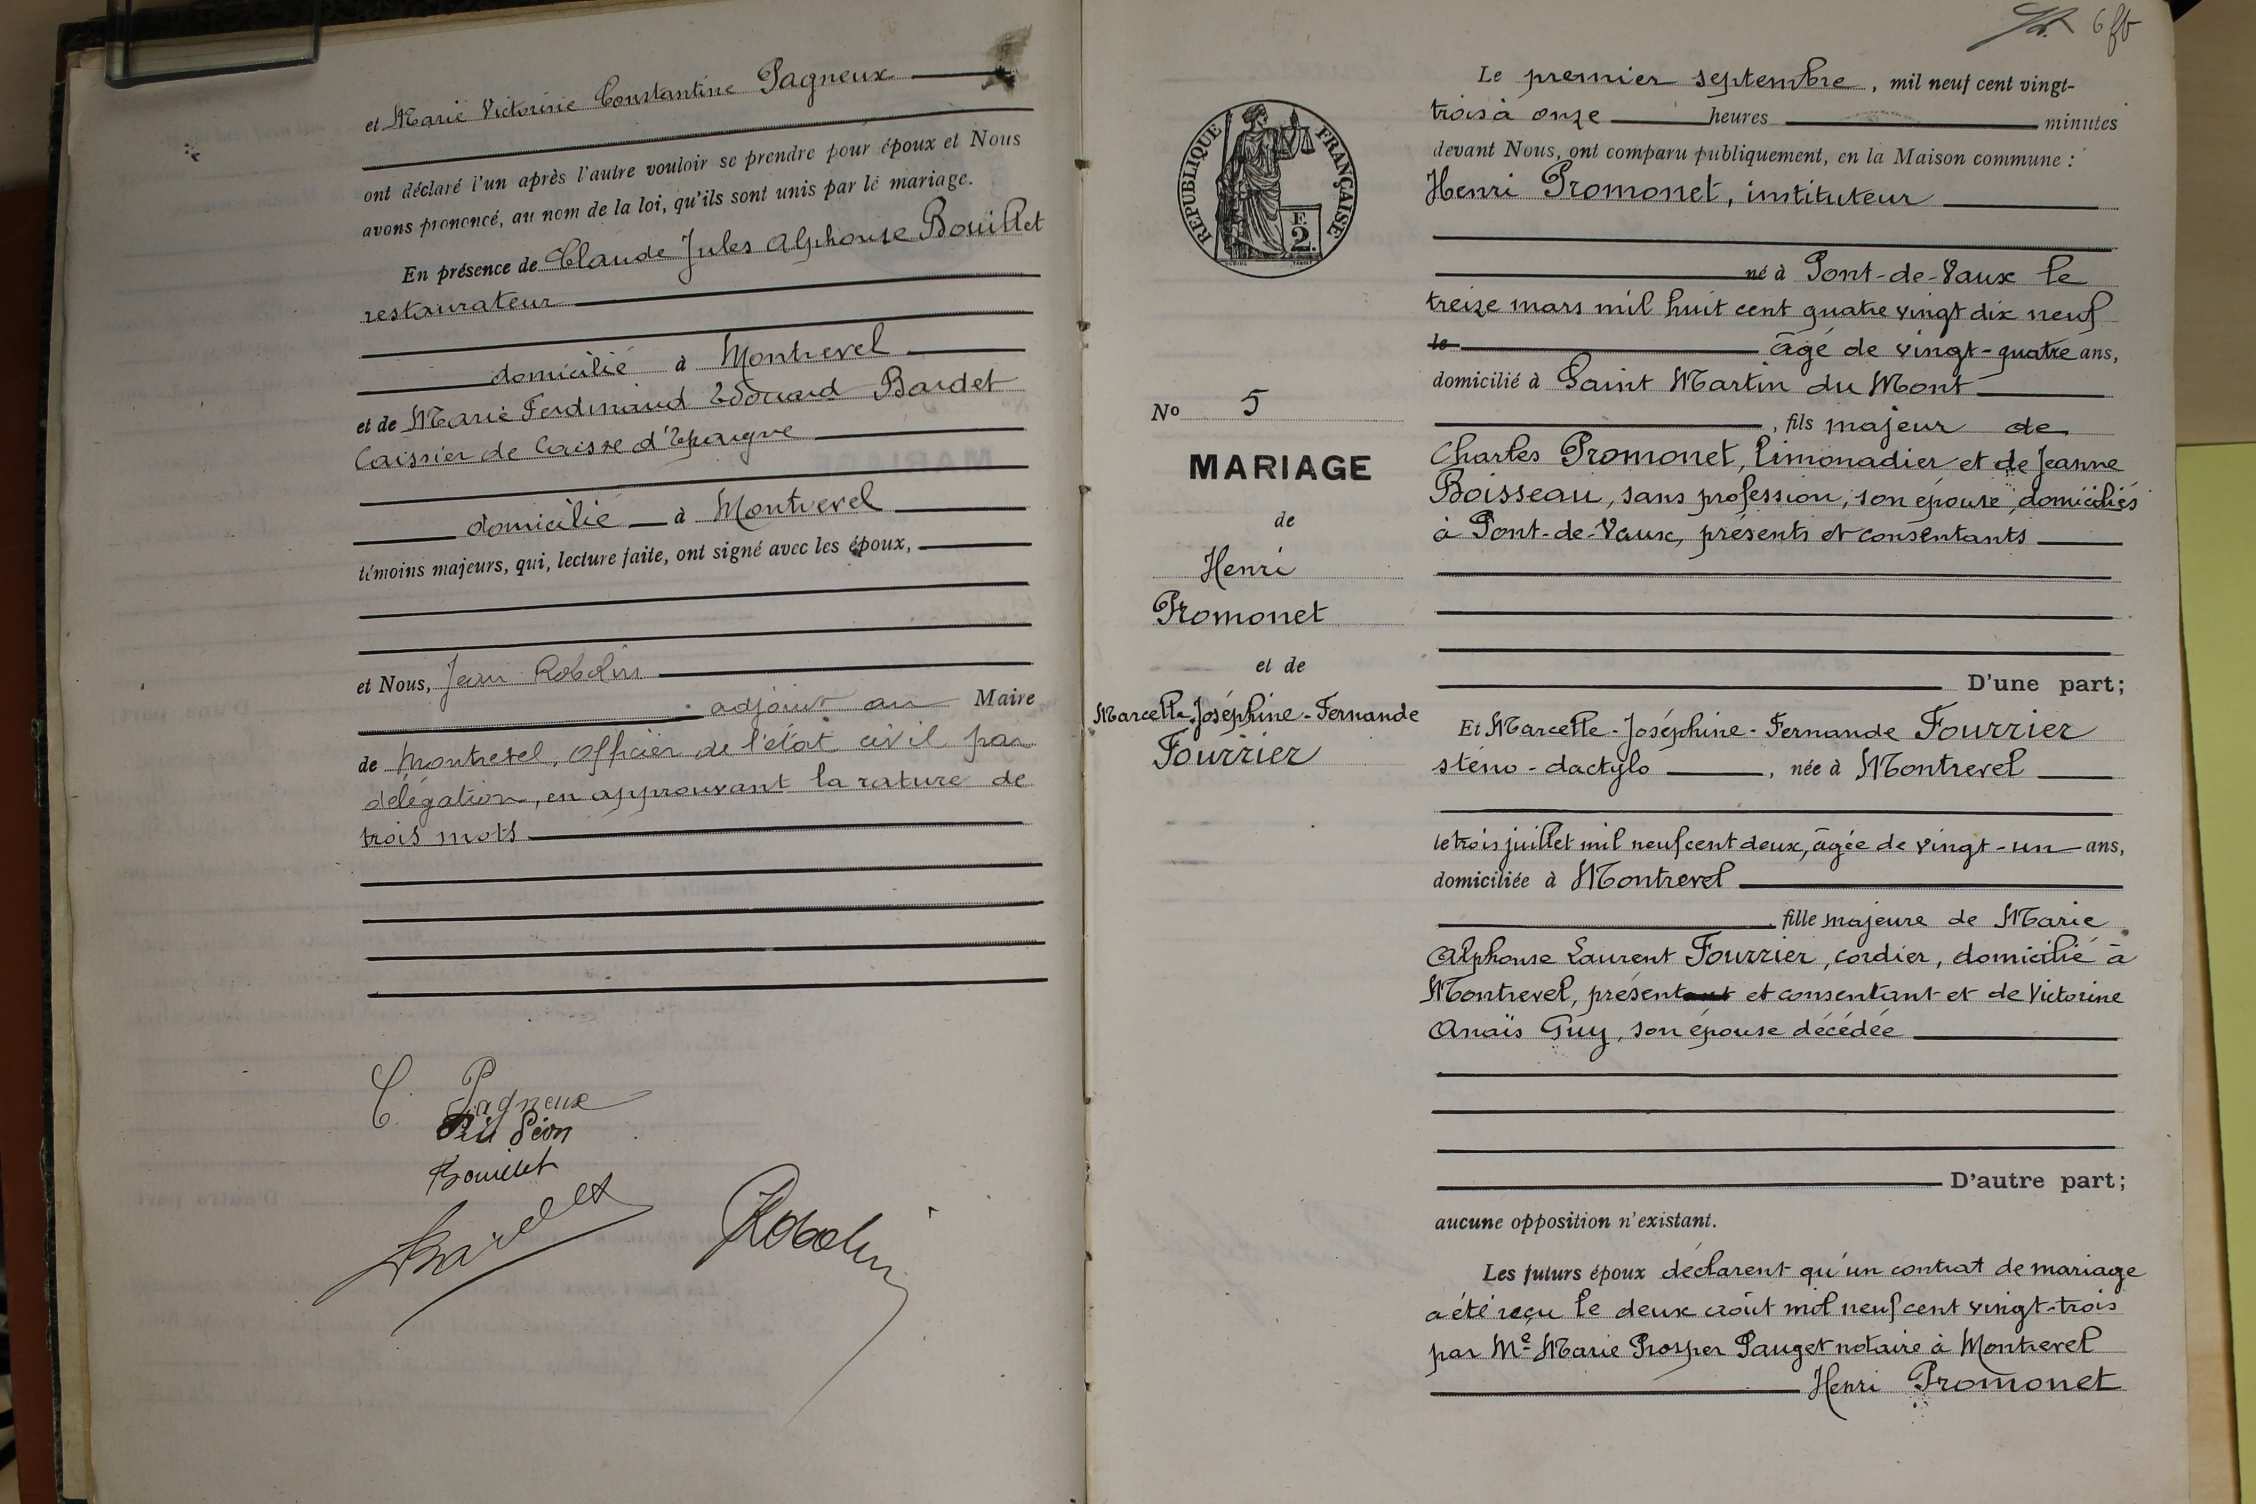 et Marie Victorine Constantine Pagneux
ont déclaré l'un après l'autre vouloir se prendre pour époux et Nous
avons prononcé, au nom de la loi, qu'ils sont unis par le mariage.
En présence de Claude Jules Alphonse Bouillet
restaurateur
domicilié à Montrevel
et de Marie Ferdinand Edouard Bardet
Caissier de Caisse d'Epargne
domicilié à Montrevel
témoins majeurs, qui, lecture faite, ont signé avec les époux,
et Nous, Jean Robolin
adjoint au Maire
de Montrevel, officier de l'état civil par
délégation, en approuvant la rature de
trois mots
C. Pagneux
Péon
Bouillet
Bardet
Robolin
6
Le premier septembre, mil neuf cent vingt-
trois à onze heures minutes
devant Nous, ont comparu publiquement, en la Maison commune :
Henri Promonet, instituteur
né à Pont-de-Vaux le
treize mars mil huit cent quatre vingt dix neuf
le âgé de vingt-quatre ans,
domicilié à Saint Martin du Mont
, fils majeur de
Charles Promonet, limonadier et de Jeanne
Boisseau, sans profession, son épouse, domiciliés
à Pont-de-Vaux, présents et consentants
D'une part;
Et Marcelle-Joséphine-Fernande Fourrier
sténo-dactylo, née à Montrevel
le trois juillet mil neuf cent deux, âgée de vingt-un ans,
domiciliée à Montrevel
fille majeure de Marie
Alphonse Laurent Fourrier, cordier, domicilié à
Montrevel, présent et consentant et de Victorine
Anaïs Guy, son épouse décédée
D'autre part;
aucune opposition n'existant.
Les futurs époux déclarent qu'un contrat de mariage
a été reçu le deux août mil neuf cent vingt-trois
par Me Marie Prosper Pauget notaire à Montrevel
Henri Promonet
RÉPUBLIQUE FRANÇAISE
F.
2.
No 5
MARIAGE
de
Henri
Promonet
et de
Marcelle Joséphine-Fernande
Fourrier